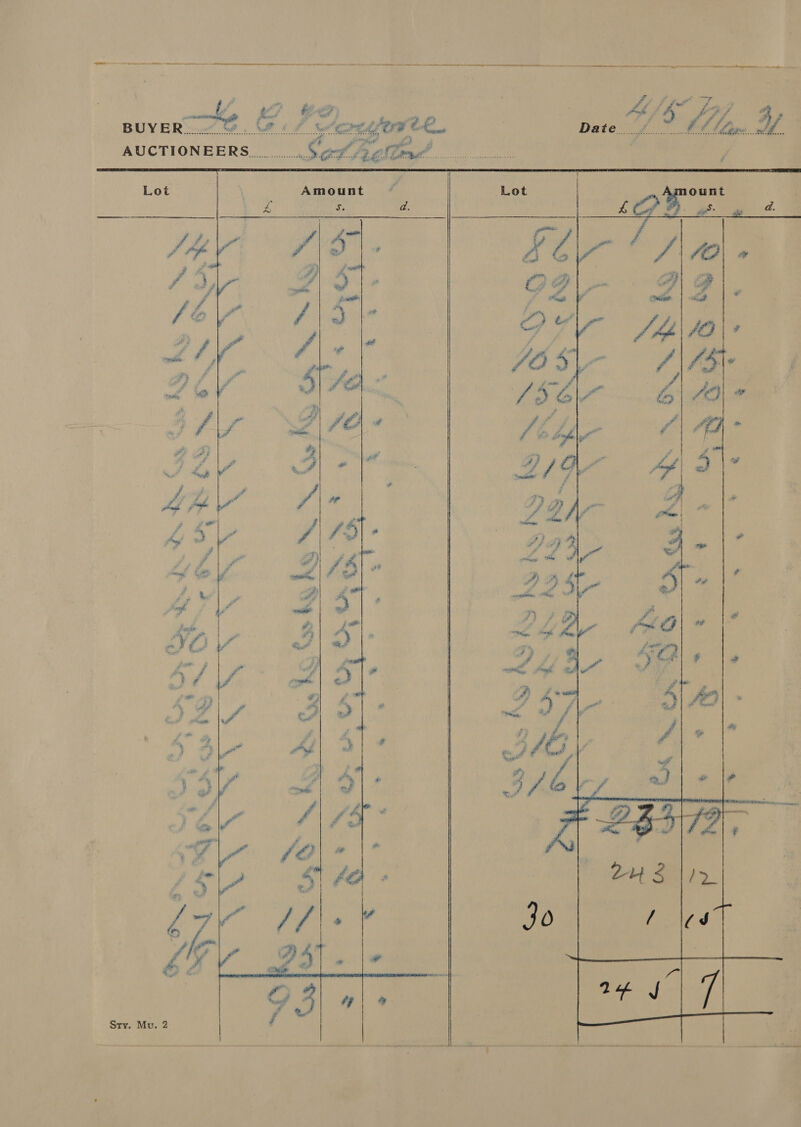 BUYER
Date 4/5
AUCTIONEERS Sotheby
Lot Amount Lot Amount
£ s. d. £ 93 s. d.
14 1 5 . 86 1 10 .
15 2 5 . 92 2 2 .
16 1 5 . 14 10 .
21 1 . . 105 1 15 .
26 5 10 . 156 6 10 .
31 2 10 . 164 1 10 .
32 3 . . 219 4 5 .
44 1 . . 221 2 . .
45 1 15 . 223 3 . .
46 2 15 . 225 5 . .
47 2 5 . 242 40 . .
50 3 5 . 243 50 . .
51 2 5 . 257 5 10 .
52 3 5 . 310 1 . .
53 4 5 . 316 3 . .
55 2 5 . £ 233 12 .
56 1 15 .
57 10 . . 243 12
65 5 10 .
67 11 . . 30 1 15
68 25 . .
93 . . 245 7
Sty. Mu. 2